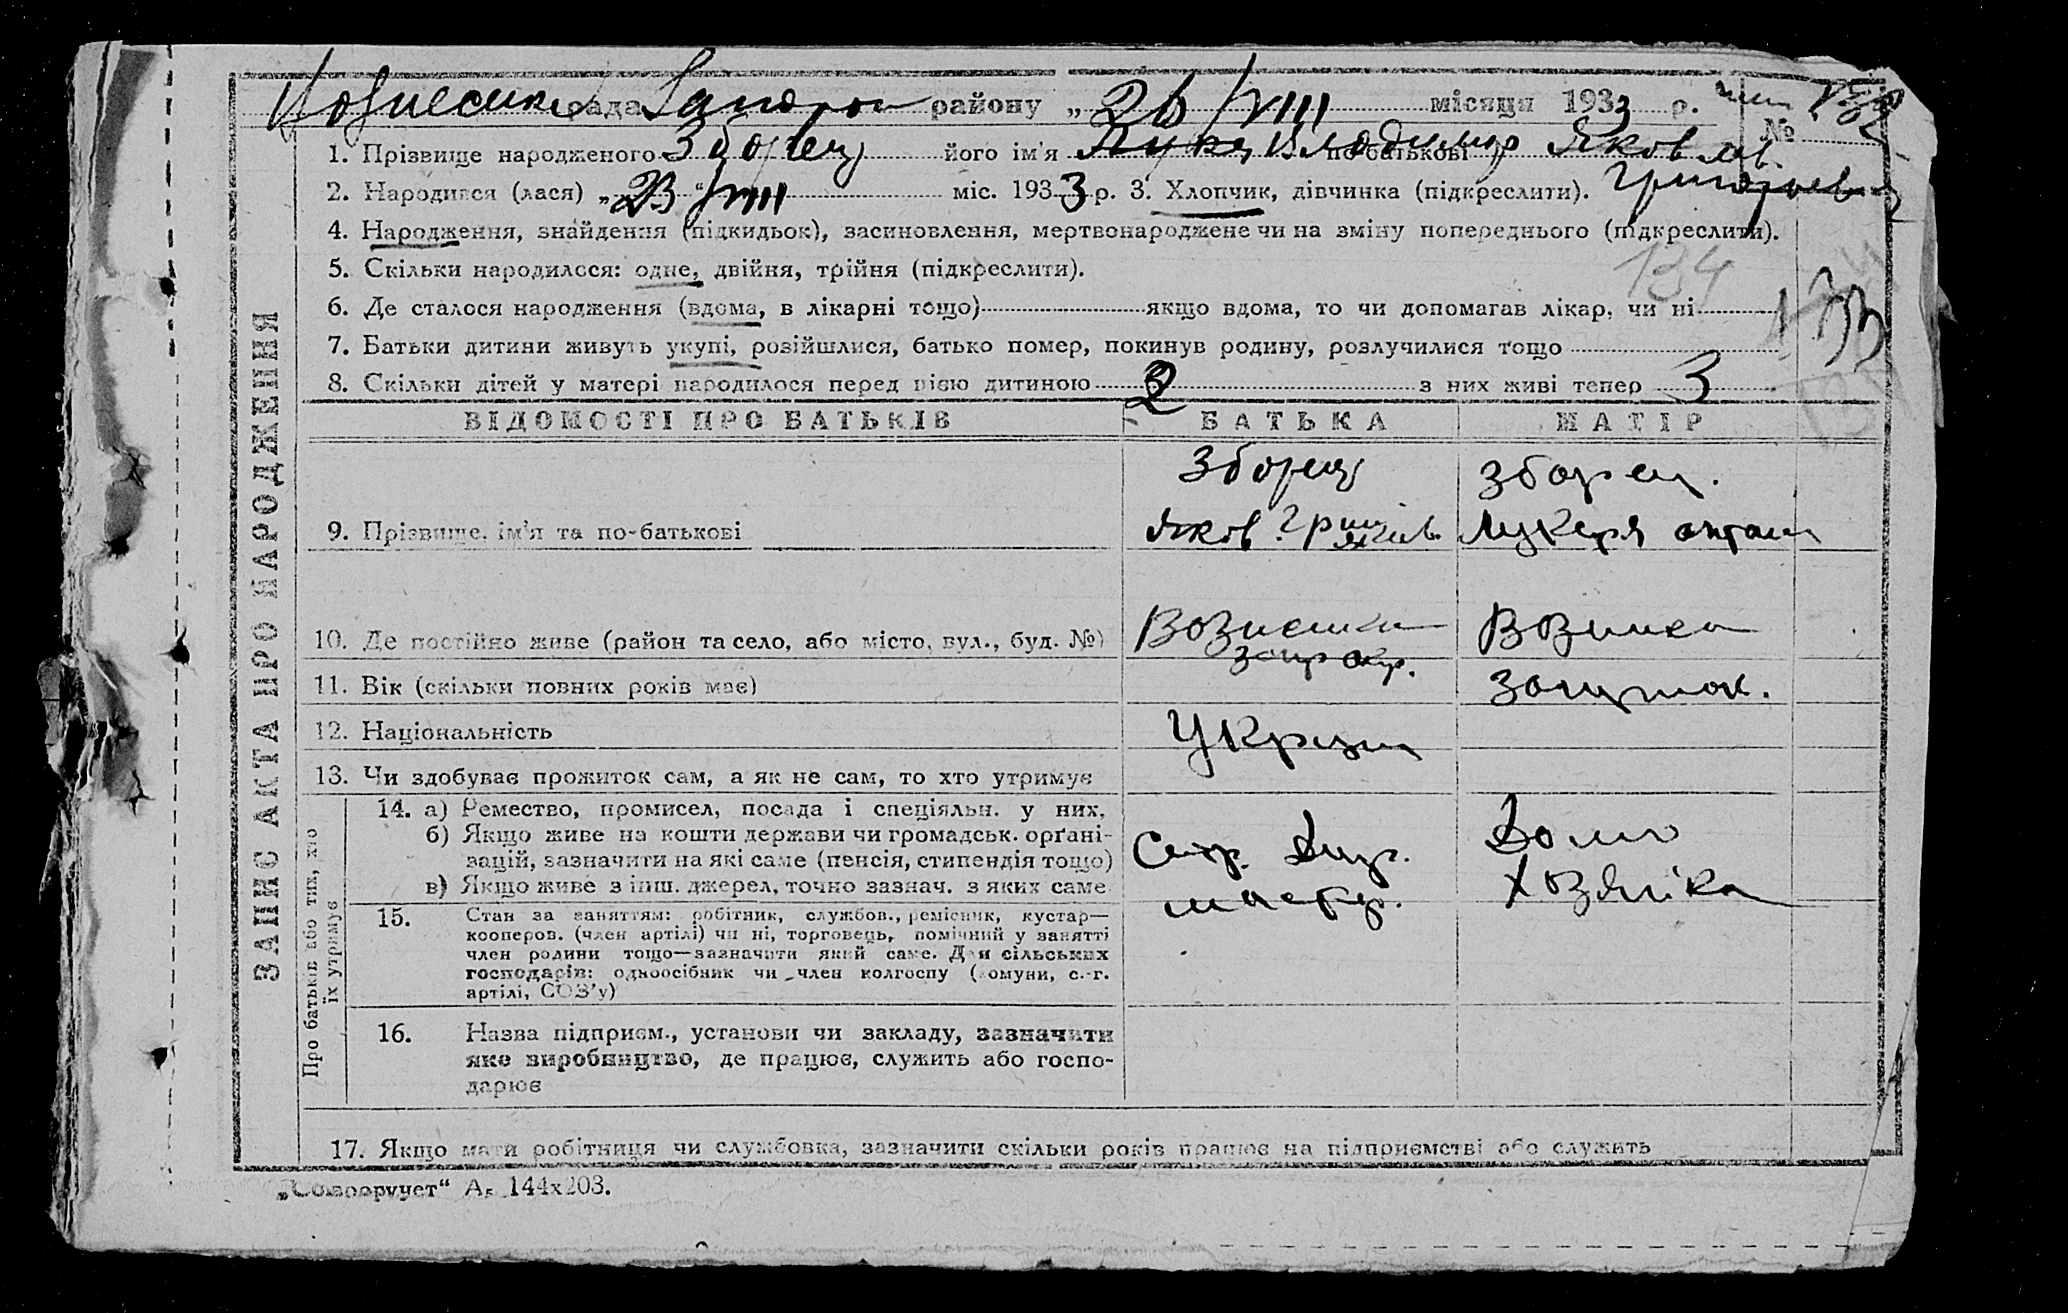 рада Запорож району „26 VIII місяця 1933 р. №
1. Прізвище народженого Зборец його ім'я Владимир по-батькові Яковлев.
2. Народився (лася) „23" VIII міс. 1933 р. 3. Хлопчик, дівчинка (підкреслити). Григорьев
4. Народження, знайдення (підкидьок), засиновлення, мертвонароджене чи на зміну попереднього (підкреслити).
134
5. Скільки народилося: одне, двійня, трійня (підкреслити).
6. Де сталося народження (вдома, в лікарні тощо) якщо вдома, то чи допомагав лікар, чи ні
133
7. Батьки дитини живуть укупі, розійшлися, батько помер, покинув родину, розлучилися тощо
8. Скільки дітей у матері народилося перед цією дитиною 2 з них живі тепер 3
ВІДОМОСТІ ПРО БАТЬКІВ БАТЬКА МАТІР
Зборец Зборец.
9. Прізвище, ім'я та по-батькові Яков Лукеря
10. Де постійно живе (район та село, або місто, вул., буд. №)
11. Вік (скільки повних років має)
12. Національність
13. Чи здобуває прожиток сам, а як не сам, то хто утримує
14. а) Ремество, промисел, посада і спеціяльн. у них.
б) Якщо живе на кошти держави чи громадськ. орґані-
зацій, зазначити на які саме (пенсія, стипендія тощо)
в) Якщо живе з інш. джерел, точно зазнач. з яких саме
Домо
хозяйка
15. Стан за заняттям: робітник, службов., ремісник, кустар—
кооперов. (член артілі) чи ні, торговець, помічний у занятті
член родини тощо—зазначити який саме. Для сільських
господарів: одноосібник чи член колгоспу (комуни, с.-г.
артілі, СОЗ'у)
16. Назва підприєм., установи чи закладу, зазначити
яке виробництво, де працює, служить або госпо-
дарює
17. Якщо мати робітниця чи службовка, зазначити скільки років працює на підприємстві або служить
ЗАПИС АКТА ПРО НАРОДЖЕННЯ
Про батьків або тих, хто
їх утримує
А₅ 144х203.